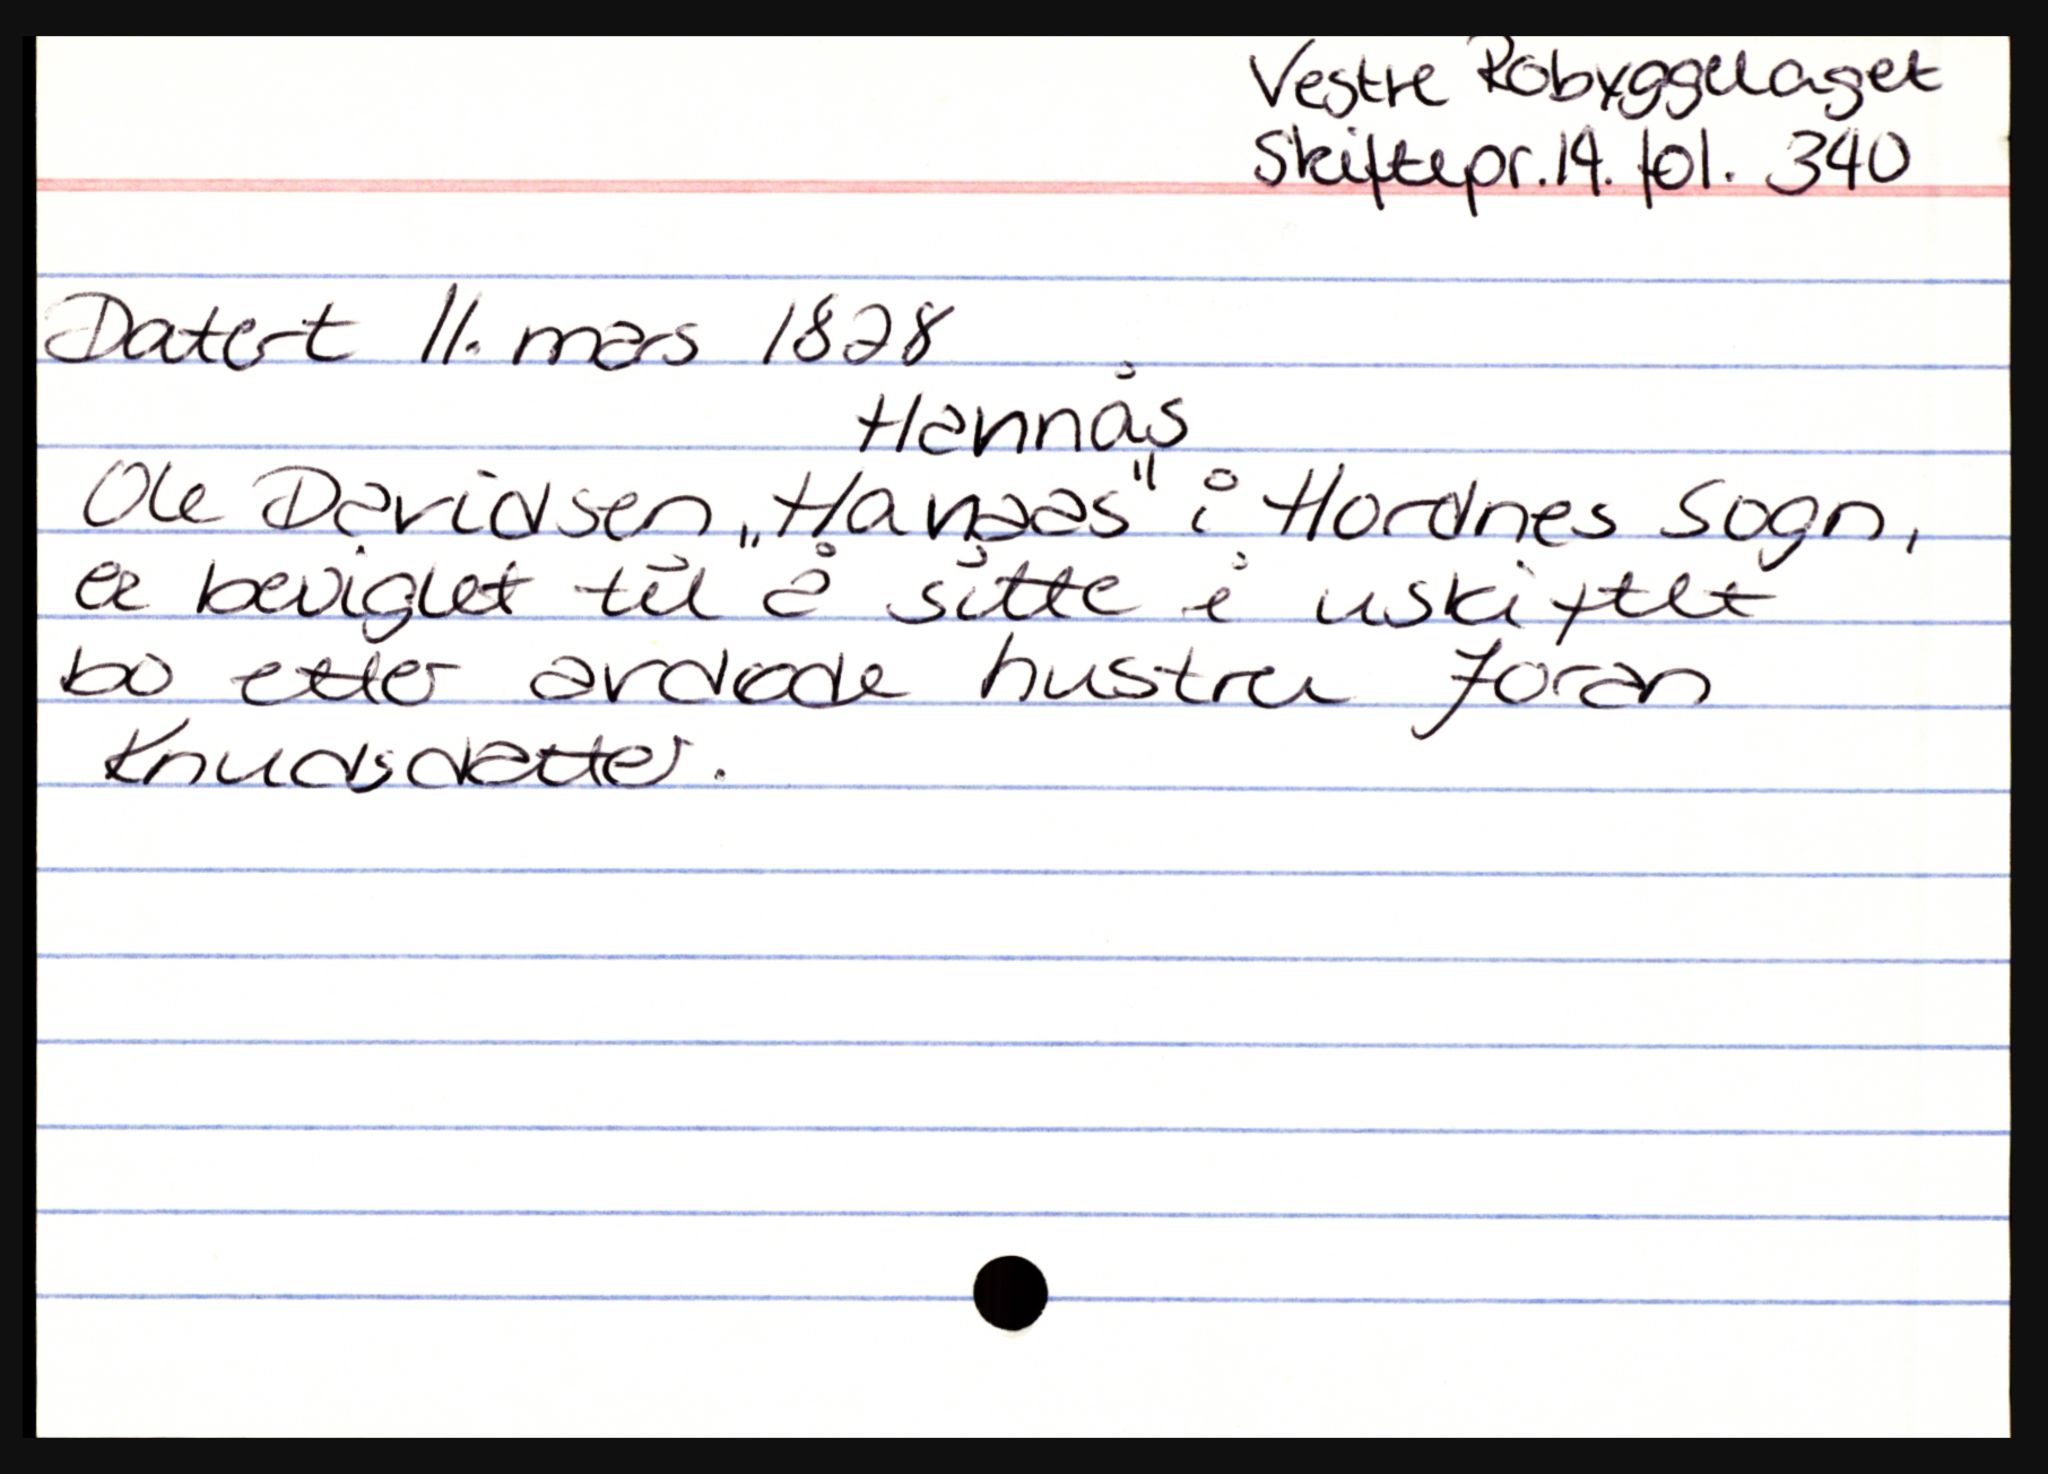 Vestre Robyggelaget
Skiftepr. 14. fol. 340
Datert 11. mars 1828
Hannås
Ole Davidsen „Hanaas" i Hordnes Sogn,
er beviglet til å sitte i uskiftet
bo etter avdøde hustru Joran
Knudsdatter.